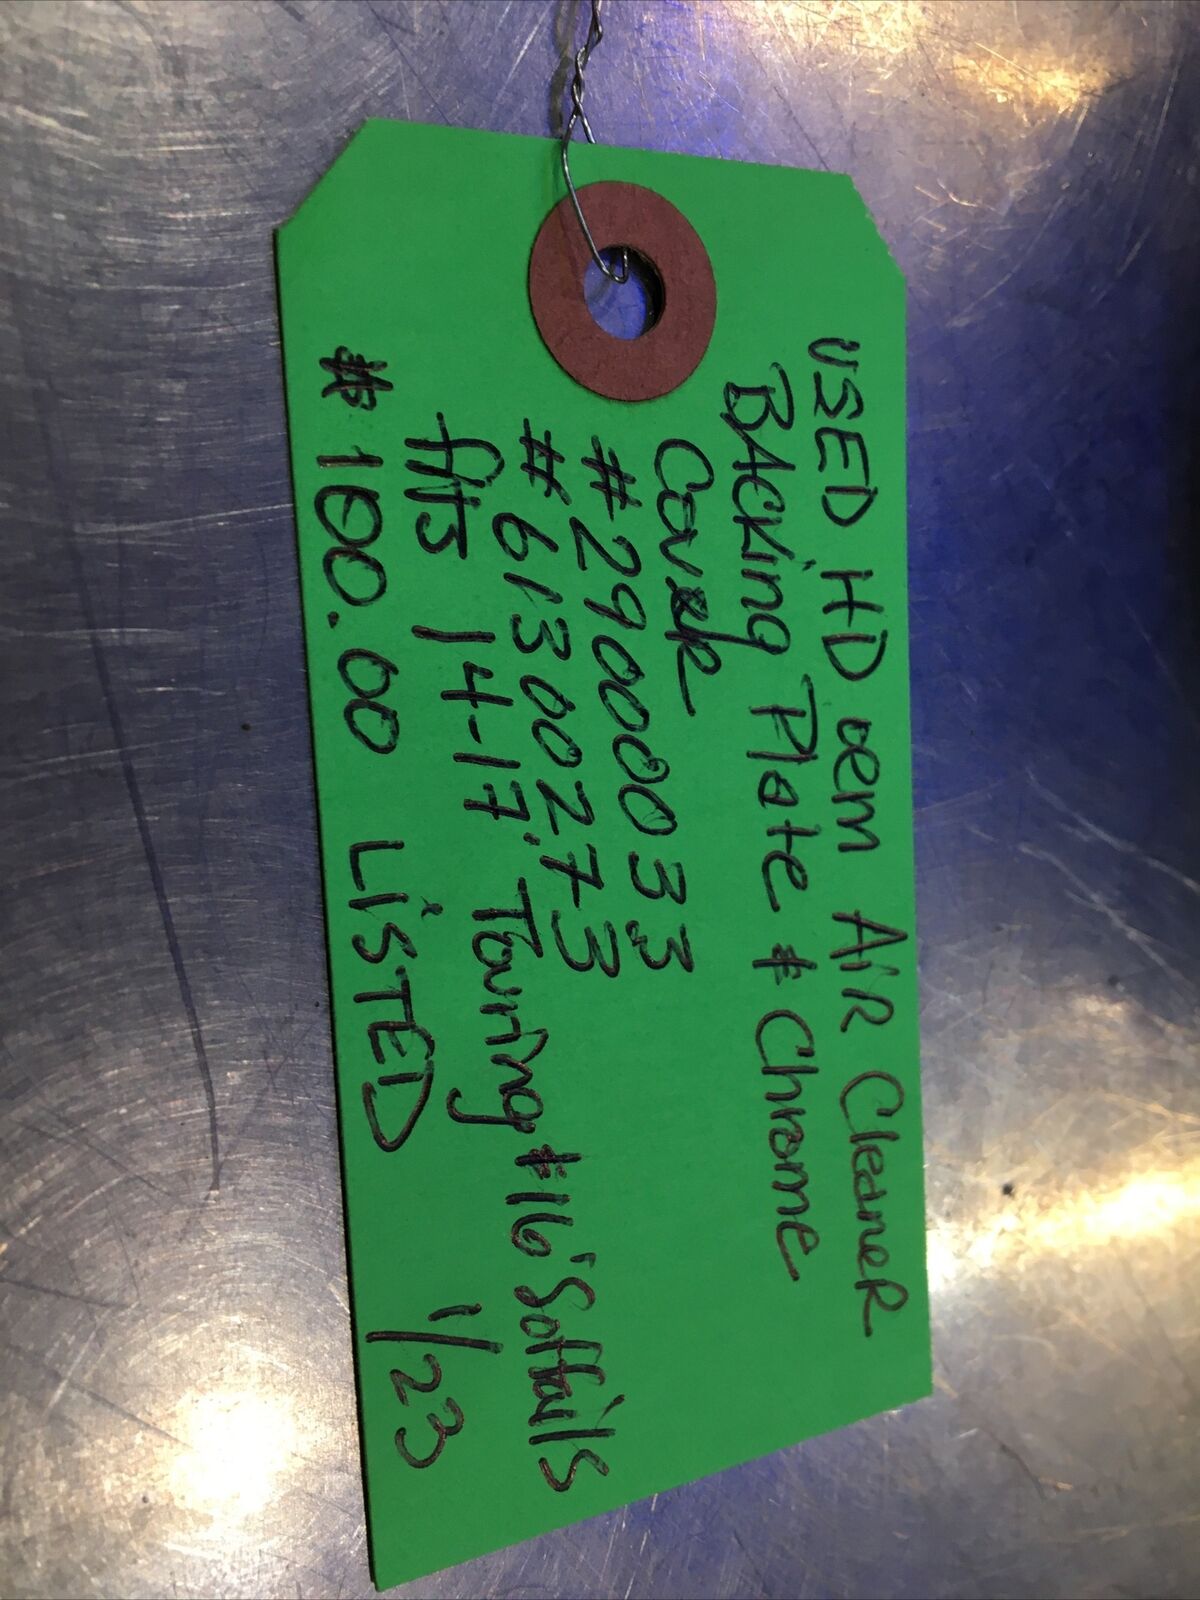 USED HD oem AiR CleaneR
BACKing Plate & Chrome
Cover
#29000033
#61300273
fits 14-17' Touring & 16' Softails
$100.00 LiSTED 1/23